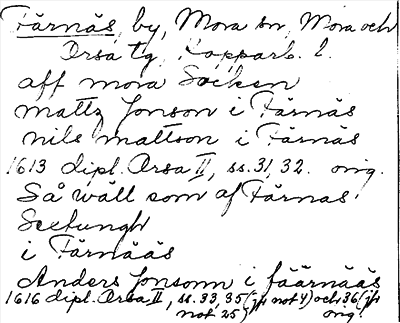 Färnäs, by, Mora sn, Mora och
Orsa tg, Kopparb. l.
aff mora Socken
mattz Jonson i Färnäs
nils mattson i Färnäs
1613 dipl. Orsa II, ss. 31, 32. orig.
Så wäll som af Färnas
Seetungh
i Färnääs
Anders Jonsonn i fäärnääs
1616 dipl. Orsa II, ss. 33, 35 (jfr not 4) och 36 (jfr
not 25) orig.